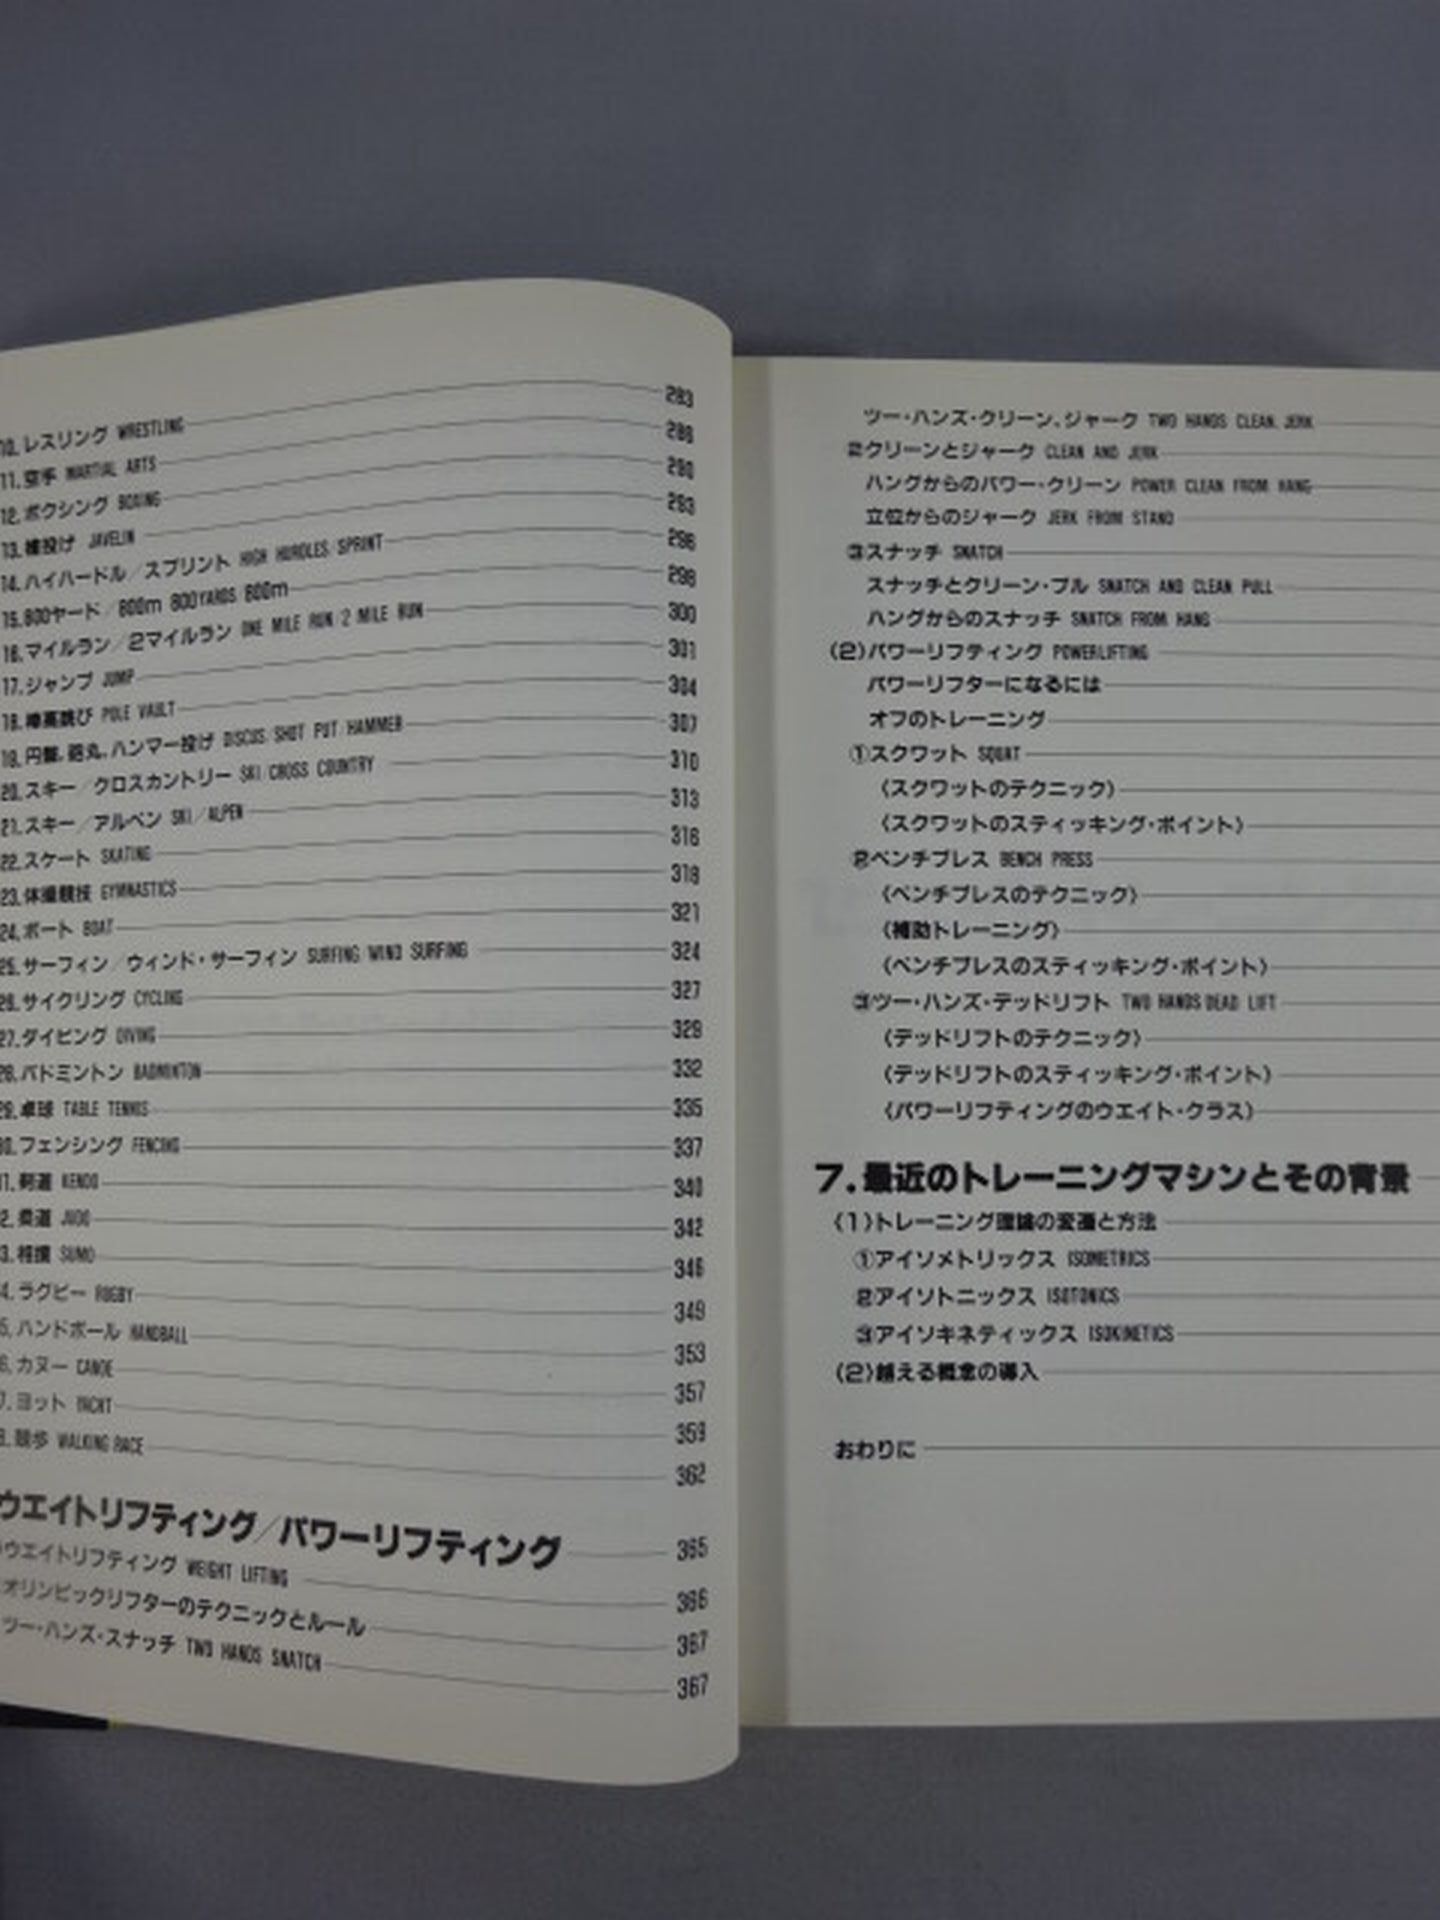 10.レスリング WRESTLING 283
11.空手 MARTIAL ARTS 286
12.ボクシング BOXING 290
13.槍投げ JAVELIN 293
14.ハイハードル/スプリント HIGH HURDLES/SPRINT 296
15.800ヤード/800m 800YARDS 800m 298
16.マイルラン/2マイルラン ONE MILE RUN/2 MILE RUN 300
17.ジャンプ JUMP 301
18.棒高跳び POLE VAULT 304
19.円盤,砲丸,ハンマー投げ DISCUS/SHOT PUT/HAMMER 307
20.スキー/クロスカントリー SKI/CROSS COUNTRY 310
21.スキー/アルペン SKI/ALPEN 313
22.スケート SKATING 316
23.体操競技 GYMNASTICS 318
24.ボート BOAT 321
25.サーフィン/ウィンド・サーフィン SURFING/WIND SURFING 324
26.サイクリング CYCLING 327
27.ダイビング DIVING 329
28.バドミントン BADMINTON 332
29.卓球 TABLE TENNIS 335
30.フェンシング FENCING 337
1.剣道 KENDO 340
2.柔道 JUDO 342
3.相撲 SUMO 346
4.ラグビー RUGBY 349
5.ハンドボール HANDBALL 353
6.カヌー CANOE 357
7.ヨット YACHT 359
8.競歩 WALKING RACE 362
ウエイトリフティング/パワーリフティング 365
ウエイトリフティング WEIGHT LIFTING 366
オリンピックリフターのテクニックとルール 367
ツー・ハンズ・スナッチ TWO HANDS SNATCH 367
ツー・ハンズ・クリーン,ジャーク TWO HANDS CLEAN, JERK
②クリーンとジャーク CLEAN AND JERK
ハングからのパワー・クリーン POWER CLEAN FROM HANG
立位からのジャーク JERK FROM STAND
③スナッチ SNATCH
スナッチとクリーン・プル SNATCH AND CLEAN PULL
ハングからのスナッチ SNATCH FROM HANG
(2)パワーリフティング POWERLIFTING
パワーリフターになるには
オフのトレーニング
①スクワット SQUAT
〈スクワットのテクニック〉
〈スクワットのスティッキング・ポイント〉
②ベンチプレス BENCH PRESS
〈ベンチプレスのテクニック〉
〈補助トレーニング〉
〈ベンチプレスのスティッキング・ポイント〉
③ツー・ハンズ・デッドリフト TWO HANDS DEAD LIFT
〈デッドリフトのテクニック〉
〈デッドリフトのスティッキング・ポイント〉
〈パワーリフティングのウエイト・クラス〉
7.最近のトレーニングマシンとその背景
(1)トレーニング理論の変遷と方法
①アイソメトリックス ISOMETRICS
②アイソトニックス ISOTONICS
③アイソキネティックス ISOKINETICS
(2)越える概念の導入
おわりに